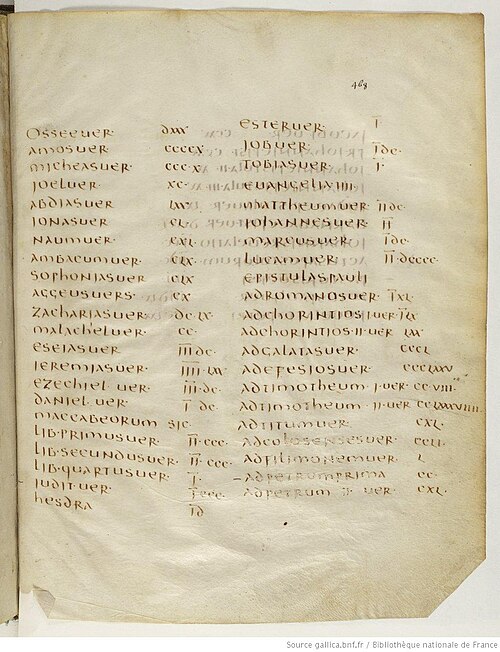 468
OSSEE UER· DXXX
AMOS UER· CCCCX
MICHEAS UER· CCCX
JOEL UER· XC·
ABDIAS UER· LXX·
JONAS UER· CL·
NAUM UER· CXL·
AMBACUM UER· CLX·
SOPHONIAS UER CLX
AGGEUS UERS· CX
ZACHARIAS UER· DCLX·
MALACHEL UER· CC·
ESEIAS UER I̅I̅I̅ DC·
IEREMIAS UER· I̅I̅I̅I̅ LXX·
EZECHIEL UER· I̅I̅I̅ DC·
DANIEL UER· I̅ DC·
MACCABEORUM SIC·
LIB·PRIMUS UER· I̅I̅ CCC·
LIB·SECUNDUS UER· I̅I̅ CCC·
LIB·QUARTUS UER· I̅·
IUDIT UER· I̅ CCC·
HESDRA I̅D
ESTER UER· I̅·
JOB UER· I̅ DC·
TOBIAS UER· I̅·
EUANGELIA IIII·
MATTHEUM UER· I̅I̅ DC·
JOHANNES UER· I̅I̅
MARCUS UER· I̅ DC·
LUCAM UER· I̅I̅ DCCCC·
EPISTULAS PAULI
AD ROMANOS UER· I̅XL·
AD CHORINTIOS I UER· I̅LX
AD CHORINTIOS·II·UER LXX·
AD GALATAS UER· CCCL
AD EFESIOS UER· CCCLXXV
AD TIMOTHEUM·I·UER·CCVIII·
AD TIMOTHEUM·II·UER CCLXXXVIIII·
AD TITUM UER· CXL·
AD COLOSENSES UER· CCLI·
AD FILIMONEM UER· L
–AD PETRUM PRIMA CC·
AD PETRUM II· UER· CXL·
Source gallica.bnf.fr / Bibliothèque nationale de France